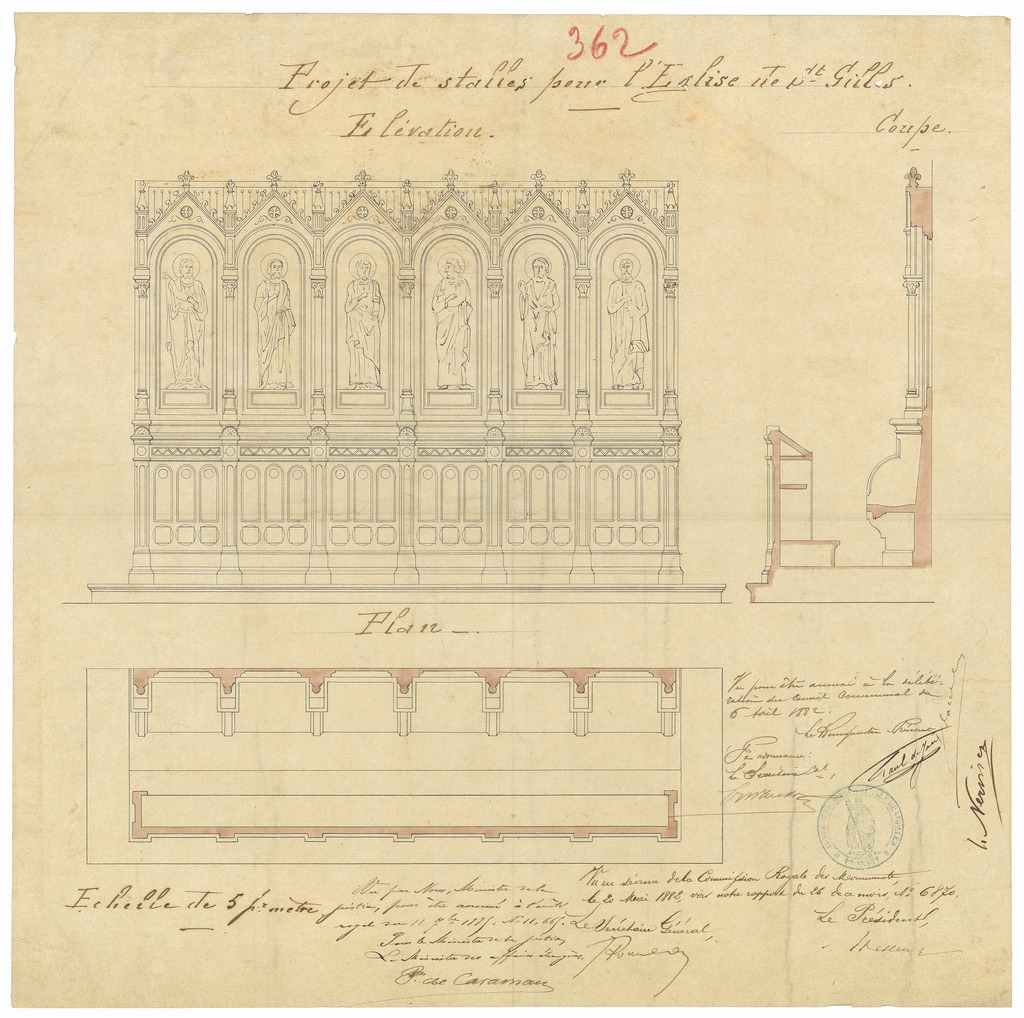 362
Projet de stalles pour l'Eglise de St Gilles.
Elévation.
Coupe.
Plan
Vu pour être annexé à la délibé-
ration du Conseil Communal du
6 Avril 1882.
Le Bourgmestre Président
Par ordonnance:
Le Secrétaire Cal,
Echelle de 5 pr. mètre
Vu par Nous, Ministre de la
justice, pour être annexé à l'arrêté
royal du 11
Pour le Ministre de la justice,
Le Ministre des affaires étrangères,
Pce de Caraman
Vu en séance de la Commission Royale des Monuments,
le 20 Mai 1882, vers notre rapport du 26 de ce mois, No 6870.
Le Secrétaire Général,
Le Président,